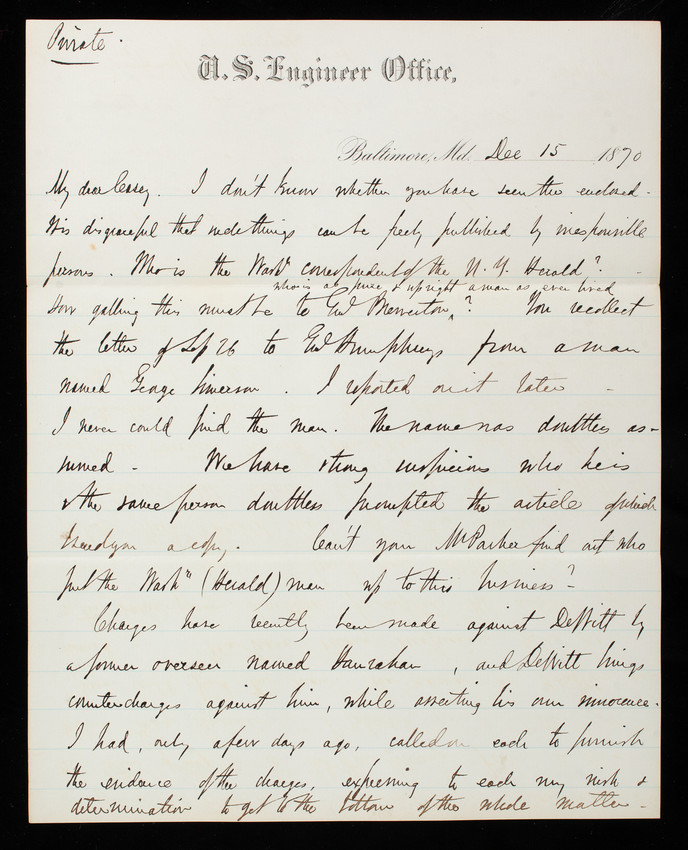 Private.
U. S. Engineer Office,
Baltimore, Md. Dec 15 1870
My dear Casey. I don't know whether you have seen the enclosed.
It is disgraceful that such things can be freely published by irresponsible
persons. Who is the Washn correspondent of the N. Y. Herald?
who is as pure & upright a man as ever lived
How galling this must be to Genl Brewerton^? You recollect
the letter of Sep 26 to Genl Humphreys from a man
named George Simerson. I reported on it later -
I never could find the man. The name was doubtless as-
sumed - We have strong suspicions who he is
& the same person doubtless prompted the article of which
I send you a copy. Can't you & Mr Parker find out who
put the Washn (Herald) man up to this business?
Charges have recently been made against DeWitt by
a former overseer named Hanrahan, and DeWitt brings
countercharges against him, while asserting his own innocence.
I had, only a few days ago, called on each to furnish
the evidence of the charges, expressing to each my wish &
determination to get to the bottom of the whole matter -